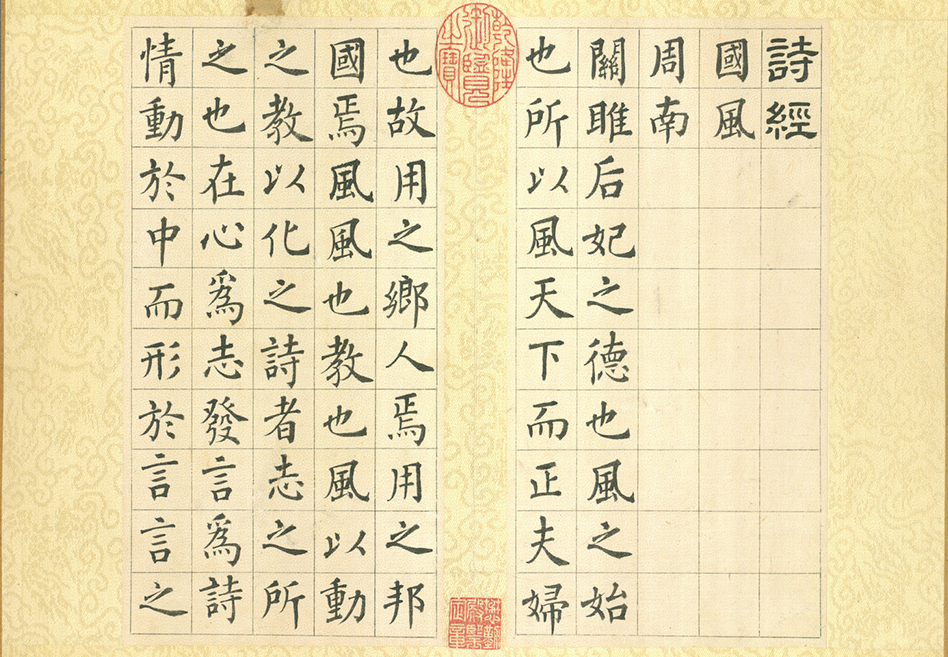 詩經
國風
周南
關雎后妃之德也風之始
也所以風天下而正夫婦
也故用之鄉人焉用之邦
國焉風風也教也風以動
之教以化之詩者志之所
之也在心為志發言為詩
情動於中而形於言言之
乾隆御覽之寶
懋勤殿鑒定章